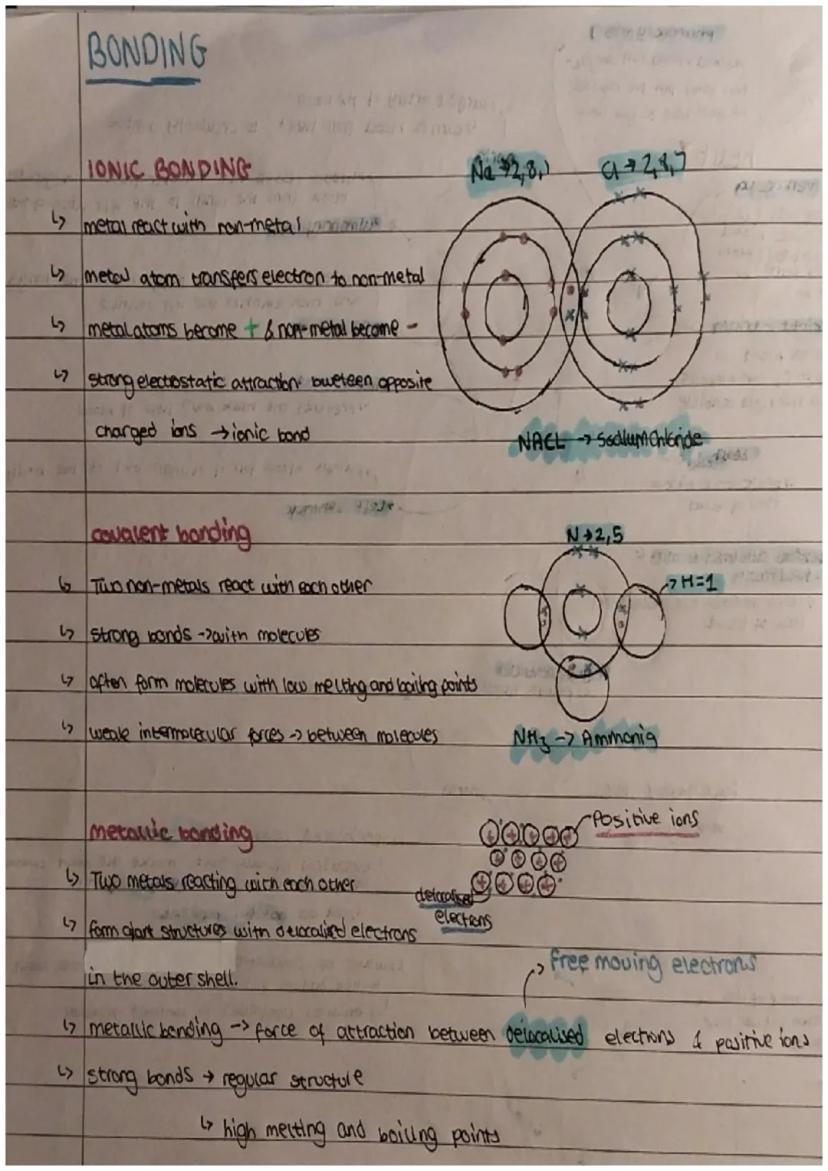 BONDING
IONIC BONDING
Na → 2,8,1
Cl → 2,8,7
↳ metal react with non-metal
↳ metal atom transfers electron to non-metal
↳ metal atoms become + & non-metal become -
↳ strong electostatic attraction buweteen opposite
charged ions → ionic bond
NACL → Sodium Chloride
covalent bonding
N → 2,5
↳ Two non-metals react with each other
→ H=1
↳ strong bonds → with molecules
↳ often form molecules with low melting and boiling points
↳ weak intermolecular forces → between molecules
NH3 → Ammonia
metallic bonding
Positive ions
↳ Two metals reacting with each other
delocalised
electrons
↳ form giant structures with delocalised electrons
in the outer shell.
→ free moving electrons
↳ metallic bonding → force of attraction between delocalised electrons & positive ions
↳ strong bonds → regular structure
↳ high melting and boiling points